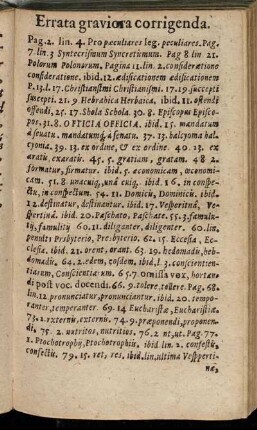 Errata graviora corrigenda.
Pag. 2. lin. 4. Pro pæculiares leg. peculiares. Pag.
7. lin. 3 Syntecrismum Syncretismum. Pag 8 lin 21.
Polorum Polonorum, Pagina 11. lin. 2. considerætione
consideratione. ibid. 12. ædisicationem ædificationem
P. 13. l. 17. Christianssmi Christianismi. 17. 19 succepti
suscepti. 21. 9 Hebravica Herbaica, ibid. 11. offendi
offendi, 25. 17. Shola Schola. 30. 8. Episcpus Episco-
pos. 31. 8. OFTICIA OFFICIA. ibid. 15. mandatum
à senatu. mandatumq́, à senatu. 37. 13. halcyoma hal-
cyonia. 39. 13. ex ordine, & ex ordine. 40. 23. ex
aratis, exaratis. 45. 5. gratium, gratam. 48 2.
formatur, firmatur. ibid. 5. æconomicam, œconomi-
cam. 51. 8. unacuiq, unà cuiq. ibid. 16. in conspe-
ctu, in conspectum. 54. 11. Domicii, Dominici. ibid.
12. destinatur, destinantur. ibid. 17. Vesperitnà, Ve-
spertinâ. ibid. 20. Paschato, Paschate. 55. 3. famulk-
itg, famulitg 60. 11. diliganter, diligenter. 60. lin.
penulti Presbyterio, Presbyterio. 62. 15. Eccesia, Ec-
clesia, ibid. 21. orent, orant. 63. 19. hedomadii, heb-
domadis, 64. 2. edem, eosdem, ibid. l. 3. conscienti-
tiarum, Conscientiarum. 65. 7. omissa vox, hortan-
di post voc. docendi. 66. 9. tolere, tollere. Pag. 68.
lin. 12. pronunciatur, pronunciantur. ibid. 20. tempo-
rantur, temperanter. 69. 14 Eucharistæ, Eucharistiæ.
73. 2. externis, externi. 74. 9. præponendi, proponen-
di, 75. 2. nutritos, nutritios. 76. 2 nt, ut. Pag. 77.
1. Ptochotrophij, Ptochotrophiis, ibid. lin. 2. confestis,
confectis. 79. 15. ret, res, ibid. lin, ultima Vesperti-